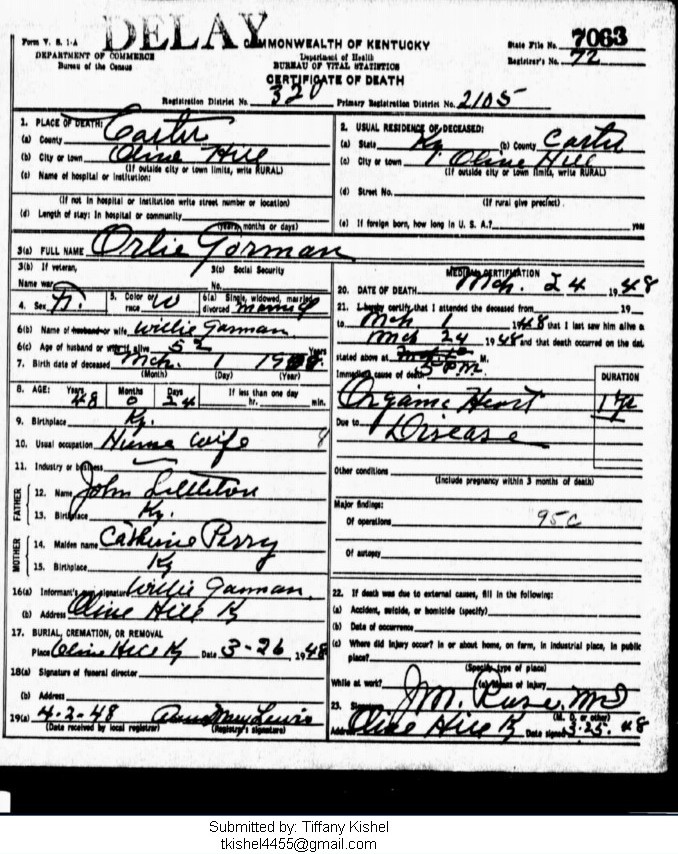 DELAY
Form V. S. 1-A
DEPARTMENT OF COMMERCE
Bureau of the Census
COMMONWEALTH OF KENTUCKY
Department of Health
BUREAU OF VITAL STATISTICS
CERTIFICATE OF DEATH
State File No. 7063
Registrar's No. 72
Registration District No. 320 Primary Registration District No. 2105
1. PLACE OF DEATH:
(a) County Carter
(b) City or town Olive Hill
(If outside city or town limits, write RURAL)
(c) Name of hospital or institution:
(If not in hospital or institution write street number or location)
(d) Length of stay: In hospital or community
(years, months or days)
2. USUAL RESIDENCE OF DECEASED:
(a) State Ky. (b) County Carter
(c) City or town Olive Hill
(If outside city or town limits, write RURAL)
(d) Street No.
(If rural give precinct)
(e) If foreign born, how long in U. S. A.? years
3(a) FULL NAME Orlie Gorman
3(b) If veteran,
Name war
3(c) Social Security
No.
4. Sex F. 5. Color or race W 6(a) Single, widowed, married, divorced married
6(b) Name of husband or wife Willie Garman
6(c) Age of husband or wife if alive 52 Years
7. Birth date of deceased Mch. 1 19
(Month) (Day) (Year)
8. AGE: Years 48 Months 0 Days 24 If less than one day
hr. min.
9. Birthplace Ky.
10. Usual occupation House wife 8
11. Industry or business
FATHER
12. Name John Littleton
13. Birthplace Ky.
MOTHER
14. Maiden name Catherine Perry
15. Birthplace Ky
16(a) Informant's own signature Willie Garman
(b) Address Olive Hill K
17. BURIAL, CREMATION, OR REMOVAL
Place Olive Hill Ky Date 3-26, 1948
18(a) Signature of funeral director
(b) Address
19(a) 4-2-48 Mary Lewis
(Date received by local registrar) (Registrar's signature)
MEDICAL CERTIFICATION
20. DATE OF DEATH Mch. 24 1948
21. I hereby certify that I attended the deceased from 19
to Mch 1 1948 that I last saw him alive o
Mch 24 1948 and that death occurred on the dat
stated above at M.
5 P.M.
Immediate cause of death
DURATION
Organic Heart
Due to Disease
Other conditions
(Include pregnancy within 3 months of death)
Major findings:
Of operations 95c
Of autopsy
22. If death was due to external causes, fill in the following:
(a) Accident, suicide, or homicide (specify)
(b) Date of occurrence
(c) Where did injury occur? In or about home, on farm, in industrial place, in public
place?
(Specify type of place)
While at work? (e) Means of injury
23. J.M. Rose, MD
(M. D. or other)
Address Olive Hill K Date signed 3-25-48
Submitted by: Tiffany Kishel
tkishel4455@gmail.com